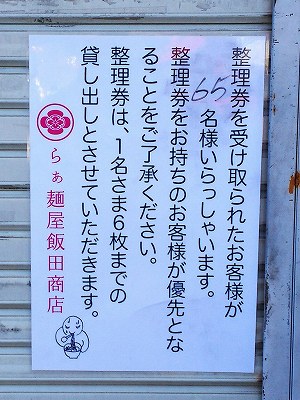 整理券を受け取られたお客様が
65名様いらっしゃいます。
整理券をお持ちのお客様が優先とな
ることをご了承ください。
整理券は、1名さま6枚までの
貸し出しとさせていただきます。
らぁ麺屋飯田商店